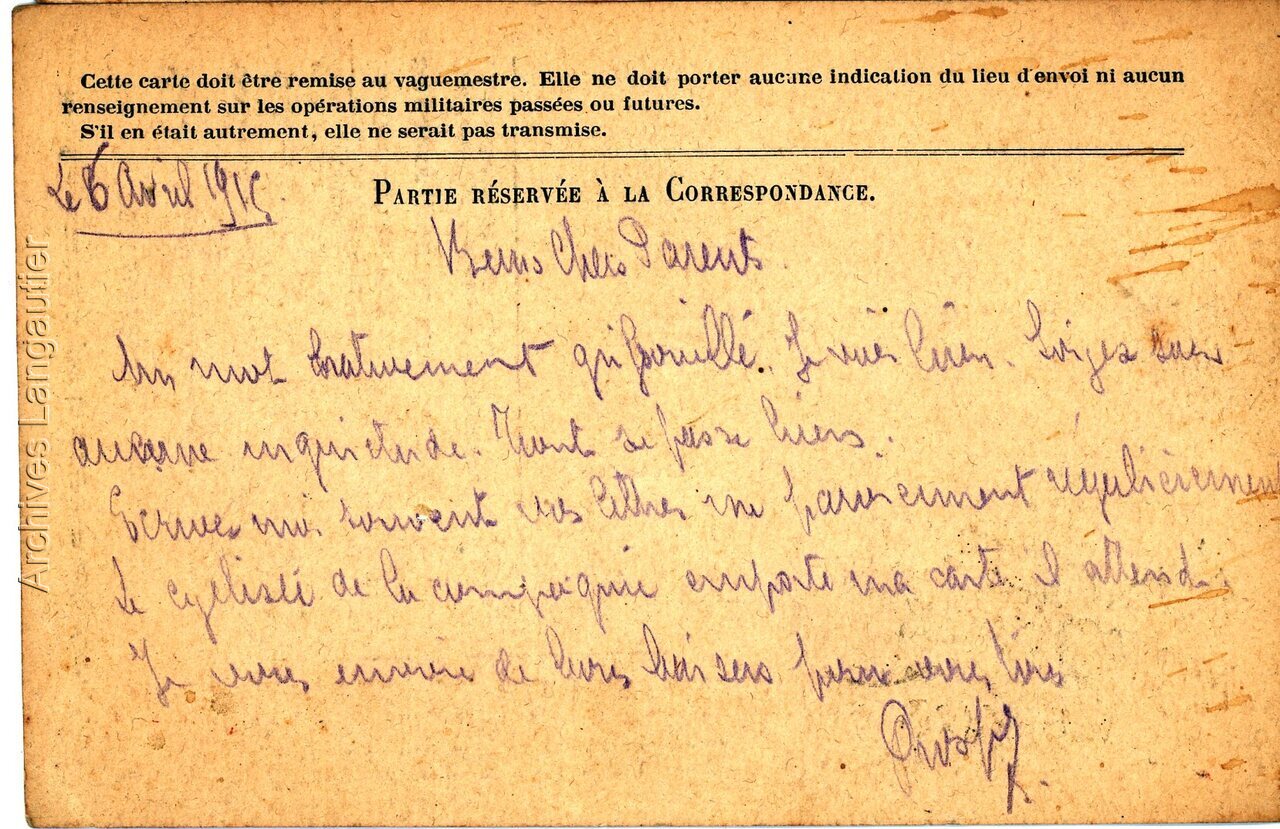 Cette carte doit être remise au vaguemestre. Elle ne doit porter aucune indication du lieu d'envoi ni aucun
renseignement sur les opérations militaires passées ou futures.
S'il en était autrement, elle ne serait pas transmise.
Le 6 Avril 1915.
PARTIE RÉSERVÉE À LA CORRESPONDANCE.
Biens Chers Parents
Un mot hativement griffouillé. Je vais bien. Soyez sans
aucune inquietude. Tout se passe bien.
Ecrivez moi souvent vos lettres me parviennent régulièrement
Le cycliste de la compagnie emporte ma carte il attend.
Je vous envoie de bons baisers pour vous tous
Prosper
Archives Langautier